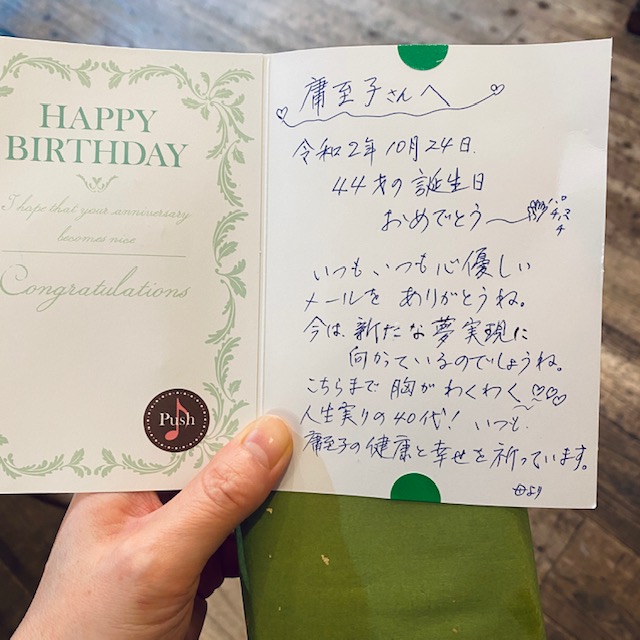 HAPPY
BIRTHDAY
I hope that your anniversary
becomes nice
Congratulations
Push
庸至子さんへ
令和2年10月24日.
44才の誕生日
おめでとう〜
パチ
パチ
いつもいつも心優しい
メールを ありがとうね。
今は、新たな夢実現に
向かっているのでしょうね。
こちらまで 胸が わくわく
人生実りの40代! いつも
庸至子の健康と幸せを祈っています。
母より